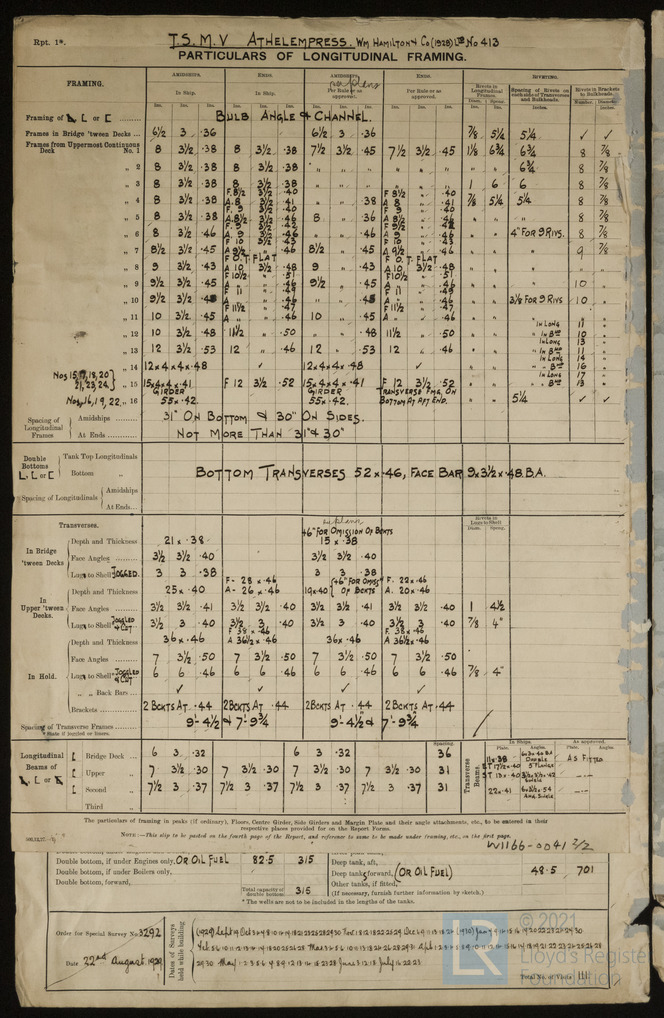 Rpt. 1*. T.S.M.V ATHELEMPRESS. WM HAMILTON & CO (1928) LTD NO 413
PARTICULARS OF LONGITUDINAL FRAMING.
FRAMING. AMIDSHIPS. ENDS. AMIDSHIPS. ENDS. Rivets in Longitudinal Frames. RIVETING.
In Ship. In Ship. Per Rule or as approved. Per Rule or as approved. Spacing of Rivets on each side of Transverses and Bulkheads. Rivets in Brackets to Bulkheads.
Ins. Ins. Ins. Ins. Ins. Ins. Ins. Ins. Ins. Ins. Ins. Ins. Diam. Spcng. Inches. Number. Diameter.
Framing of L, L or [ BULB ANGLE & CHANNEL.
Frames in Bridge 'tween Decks ... 6½ 3 .36 6½ 3 .36 ⅞ 5¼ 5¼ ✓ ✓
Frames from Uppermost Continuous Deck No. 1 8 3½ .38 8 3½ .38 7½ 3½ .45 7½ 3½ .45 1⅛ 6¾ 6¾ 8 ⅞
„ 2 8 3½ .38 8 3½ .38 „ „ „ „ „ „ „ „ 6¾ 8 ⅞
„ 3 8 3½ .38 8 3½ .38 „ „ „ „ „ „ 1 6 6 8 ⅞
F. 8½ 3½ .40 F 8½ .40
„ 4 8 3½ .38 A. 8 3½ .41 „ „ .38 A 8 „ .41 ⅞ 5¼ 5¼ 8 ⅞
F. 9 3½ .40 F 9 .40
„ 5 8 3½ .38 A. 8½ 3½ .46 8 „ .36 A 8½ „ .46 „ „ „ 8 ⅞
„ 6 8 3½ .46 A 9 „ .46 „ „ .46 A 9 „ .46 „ „ 4" FOR 9 RIVS. 8 ⅞
F 10 3½ .43 F 10 .43
„ 7 8½ 3½ .45 A 9½ „ .46 8½ „ .45 A 9½ „ .46 „ „ „ 9 ⅞
F O.T. FLAT F O.T. FLAT
„ 8 9 3½ .43 A 10 3½ .48 9 „ .43 A 10 3½ .48 „ „ „ „ „
F 10½ .51 F 10½ .51
„ 9 9½ 3½ .45 A „ „ .46 9½ „ .45 A „ „ .46 „ „ „ 10 „
F 11 .49 F 11 .49
„ 10 9½ 3½ .45 A „ „ .46 „ „ .45 A „ „ .46 „ „ 3⅛ FOR 9 RIVS 10 „
F 11½ .47 F 11½ .47
„ 11 10 3½ .45 A „ .46 10 „ .45 A „ .46 „ „
„ 12 10 3½ .48 11½ „ .50 „ „ .48 11½ „ .50 „ „ IN LONG 11 „ IN BHD 10 „
„ 13 12 3½ .53 12 „ .46 12 „ .53 12 „ .46 „ „ IN LONG 13 „ IN BHD 11 „
„ 14 12 x 4 x 4 x .48 ✓ 12 x 4 x 4 x .48 ✓ „ „ IN LONG 14 „ „ BHD 16 „
Nos 15, 17, 18, 20, 21, 23, 24 „ 15 15 x 4 x 4 x .41 F 12 3½ .52 15 x 4 x 4 x .41 F 12 3½ .52 „ „ IN LONG 17 „ „ BHD 13 „
Nos, 16, 19, 22, „ 16 GIRDER 55 x .42. GIRDER 55 x .42. TRANSVERSE FMG, ON BOTTOM AT AFT END. „ „ 5¼ ✓ ✓
Spacing of Longitudinal Frames Amidships 31" ON BOTTOM & 30" ON SIDES.
At Ends NOT MORE THAN 31" & 30"
Double Bottoms L, L or [ Tank Top Longitudinals
Bottom „ BOTTOM TRANSVERSES 52 x .46, FACE BAR 9 x 3½ x .48 B.A.
Spacing of Longitudinals Amidships
At Ends...
Transverses. Rivets in Lugs to Shell
Diam. Spcng.
46" FOR OMISSION OF BCKTS
In Bridge 'tween Decks Depth and Thickness 21 x .38 15 x .38
Face Angles 3½ 3½ .40 3½ 3½ .40
Lugs to Shell* JOGGED. 3 3 .38 3 3 .38
In Upper 'tween Decks. Depth and Thickness 25 x .40 F- 28 x .46 A- 26 x .46 19 x .40 (+6" FOR OMISSN OF BCKTS F. 22 x .46 A. 20 x .46
Face Angles 3½ 3½ .41 3½ 3½ .40 3½ 3½ .41 3½ 3½ .40 1 4½
Lugs to Shell* JOGGLED & CUT 3½ 3 .40 3½ 3 .40 3½ 3 .40 3½ 3 .40 ⅞ 4"
In Hold. Depth and Thickness 36 x .46 F 38 x .46 A 36½ x .46 36 x .46 F. 38 x .46 A 36½ x .46
Face Angles 7 3½ .50 7 3½ .50 7 3½ .50 7 3½ .50
Lugs to Shell* JOGGLED & CUT 6 6 .46 6 6 .46 6 6 .46 6 6 .46 ⅞ 4"
„ „ Back Bars ... ✓ ✓ ✓ ✓
Brackets 2 BCKTS AT .44 2 BCKTS AT .44 2 BCKTS AT .44 2 BCKTS AT .44
Spacing of Transverse Frames 9'-4½ & 7'-9¾ 9'-4½ & 7'-9¾
* State if joggled or liners.
Longitudinal Beams of L, L or [ Bridge Deck ... 6 3 .32 6 3 .32 Spacing. 36
Upper „ 7 3½ .30 7 3½ .30 7 3½ .30 7 3½ .30 31
Second „ 7½ 3 .37 7½ 3 .37 7½ 3 .37 7½ 3 .37 31
Third „
Transverse Beams. In Ships. As approved.
Plate. Angles. Plate. Angles.
AS FITTED
The particulars of framing in peaks (if ordinary), Floors, Centre Girder, Side Girders and Margin Plate and their angle attachments, etc., to be entered in their
respective places provided for on the Report Forms.
NOTE:—This slip to be pasted on the fourth page of the Report, and reference to same to be made under framing, etc., on the first page.
W1166-0041 2/2
Double bottom, if under Engines only, OR OIL FUEL 82.5 315
Double bottom, if under Boilers only,
Double bottom, forward,
Total capacity of double bottom 315
Deep tank, aft,
Deep tank, forward, (OR OIL FUEL) 48.5 701
Other tanks, if fitted,
(If necessary, furnish further information by sketch.)
* The wells are not to be included in the lengths of the tanks.
Order for Special Survey No. 3292
Date 22nd August 1929
Dates of Surveys held while building
Total No. of Visits 111
© 2021
Lloyd's Register
Foundation
LR